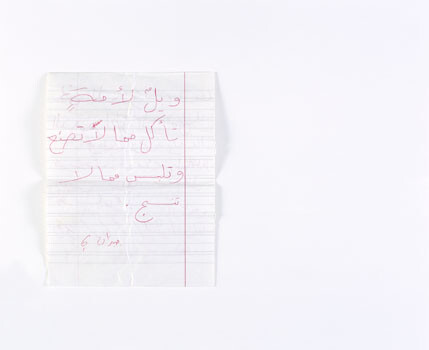 ويلٌ لأمةٍ
تأكل مما لا تصنع
وتلبس مما لا
تنسج.